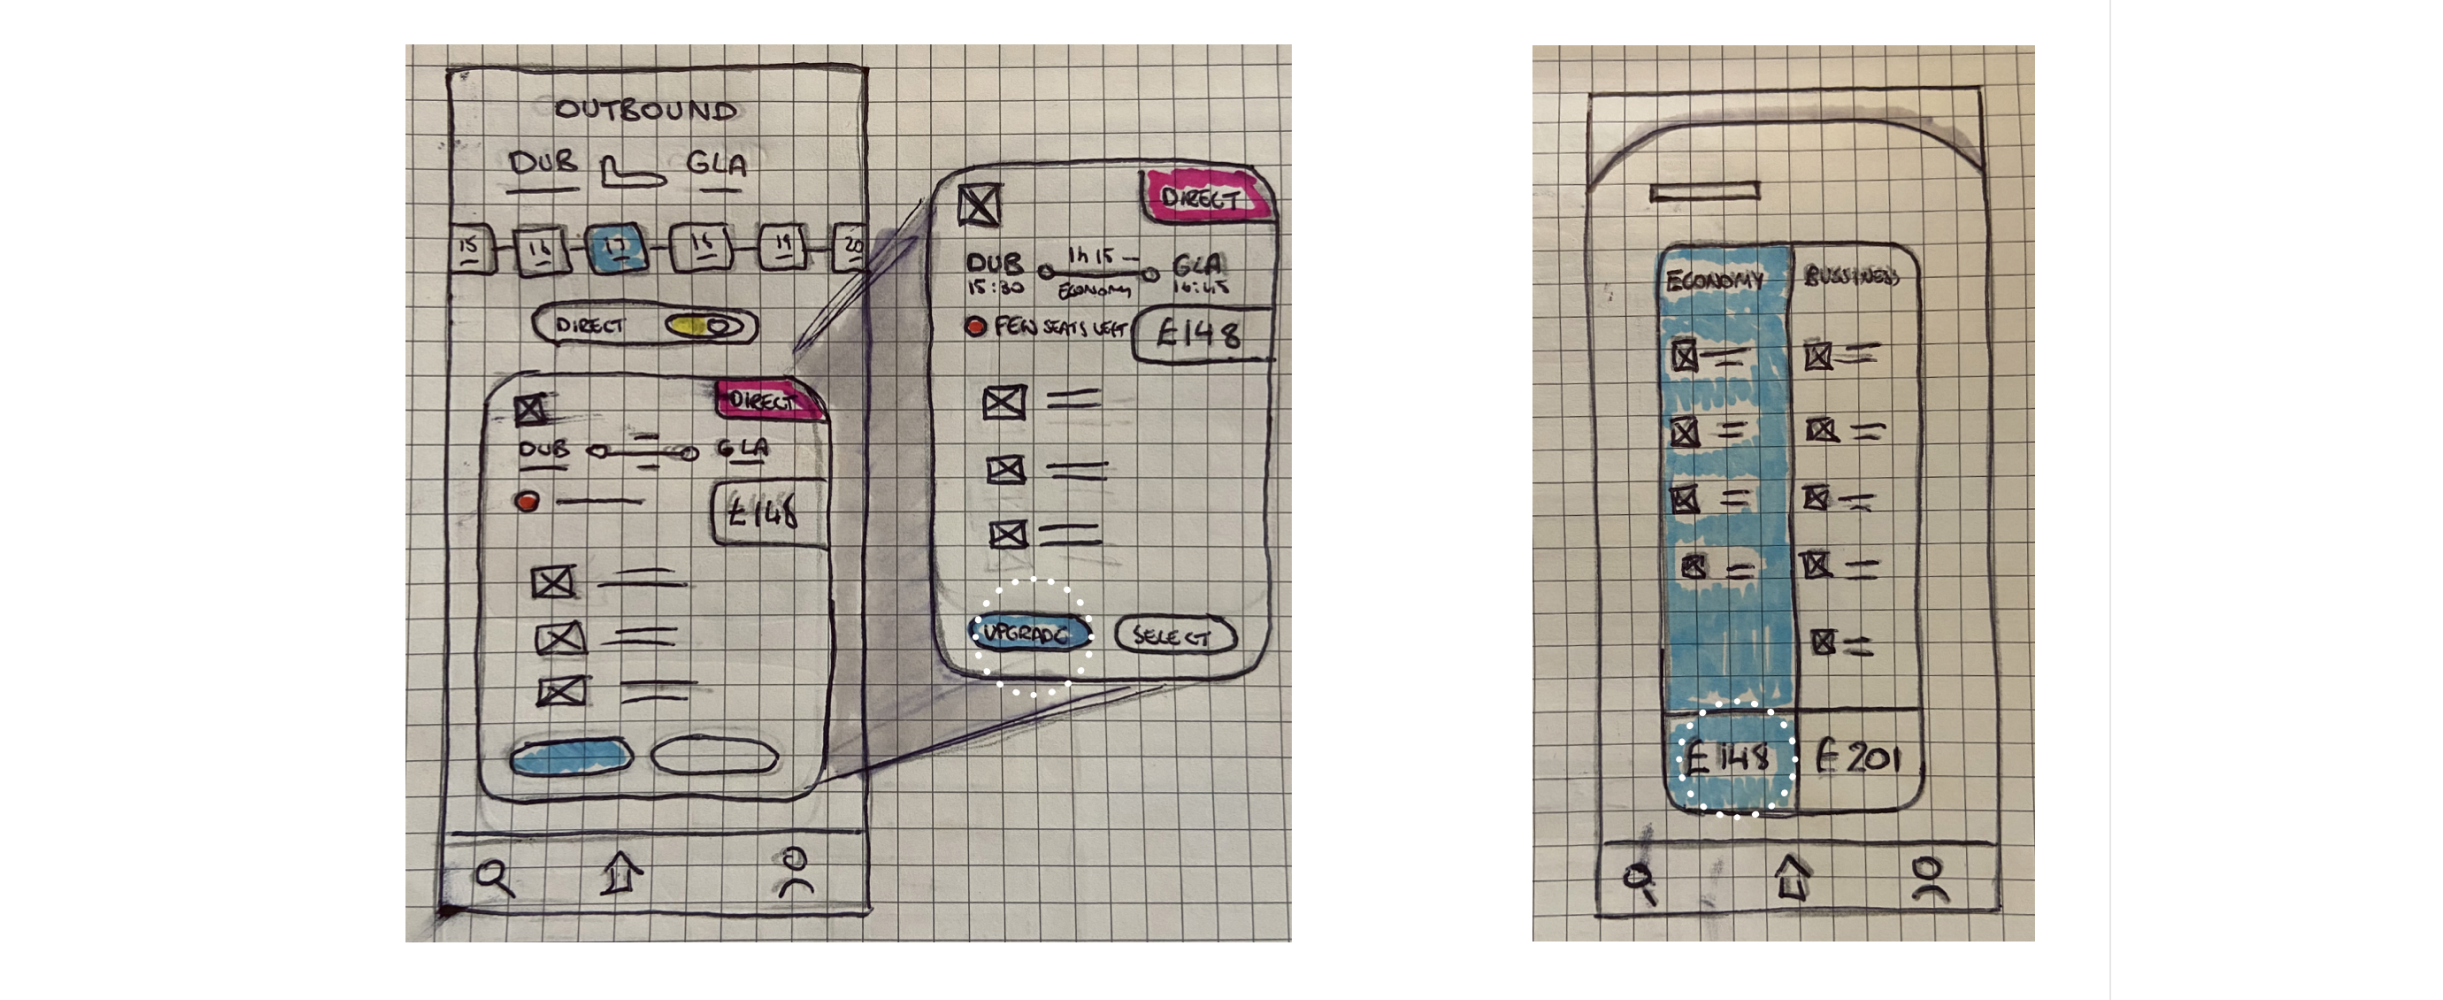 OUTBOUND
DUB GLA
15 16 17 18 19 20
DIRECT
DIRECT
DUB GLA
£148
DIRECT
DUB 1h 15 GLA
15:30 ECONOMY 16:45
FEW SEATS LEFT £148
UPGRADE SELECT
ECONOMY BUSSINESS
£148 £201